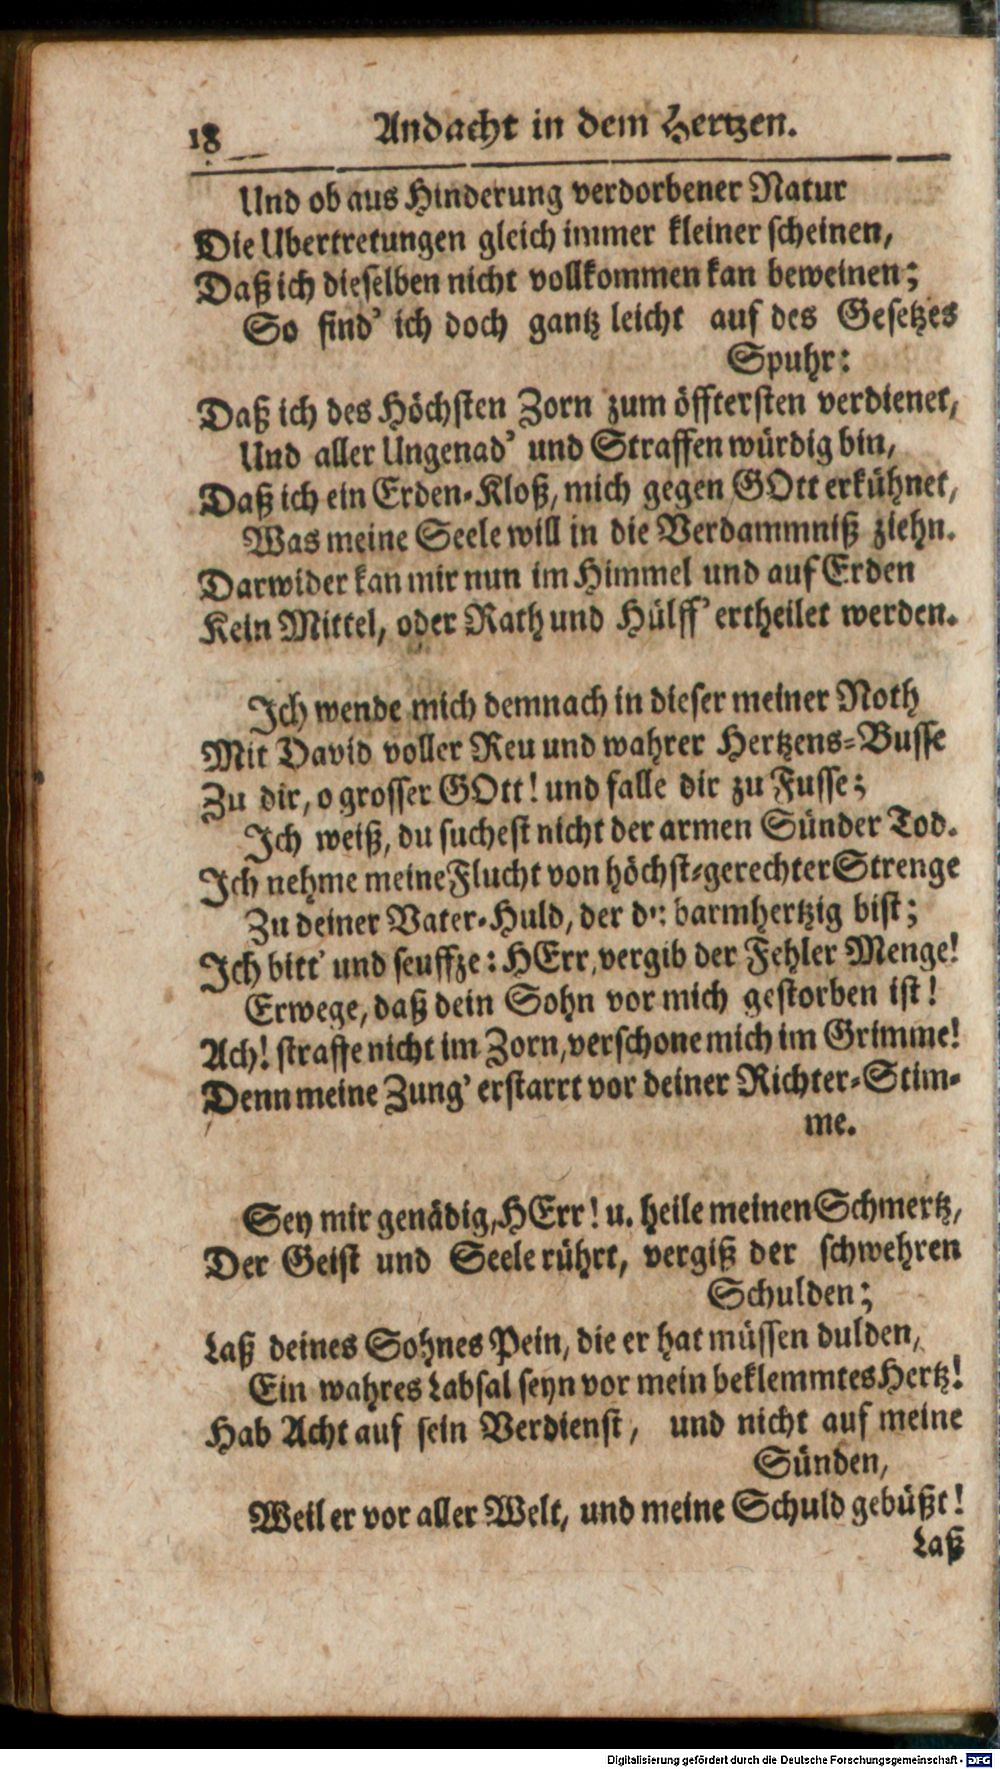 18 Andacht in dem Hertzen.
Und ob aus Hinderung verdorbener Natur
Die Ubertretungen gleich immer kleiner scheinen,
Daß ich dieselben nicht vollkommen kan beweinen;
So find' ich doch gantz leicht auf des Gesetzes
Spuhr:
Daß ich des Höchsten Zorn zum öfftersten verdienet,
Und aller Ungenad' und Straffen würdig bin,
Daß ich ein Erden-Kloß, mich gegen GOtt erkühnet,
Was meine Seele will in die Verdammniß ziehn.
Darwider kan mir nun im Himmel und auf Erden
Kein Mittel, oder Rath und Hülff' ertheilet werden.
Ich wende mich demnach in dieser meiner Noth
Mit David voller Reu und wahrer Hertzens-Busse
Zu dir, o grosser GOtt! und falle dir zu Fusse;
Ich weiß, du suchest nicht der armen Sünder Tod.
Ich nehme meine Flucht von höchst-gerechter Strenge
Zu deiner Vater-Huld, der du barmhertzig bist;
Ich bitt' und seuffze: HErr, vergib der Fehler Menge!
Erwege, daß dein Sohn vor mich gestorben ist!
Ach! straffe nicht im Zorn, verschone mich im Grimme!
Denn meine Zung' erstarrt vor deiner Richter-Stim-
me.
Sey mir genädig, HErr! u. heile meinen Schmertz,
Der Geist und Seele rührt, vergiß der schwehren
Schulden;
Laß deines Sohnes Pein, die er hat müssen dulden,
Ein wahres Labsal seyn vor mein beklemmtes Hertz!
Hab Acht auf sein Verdienst, und nicht auf meine
Sünden,
Weil er vor aller Welt, und meine Schuld gebüßt!
Laß
Digitalisierung gefördert durch die Deutsche Forschungsgemeinschaft - DFG